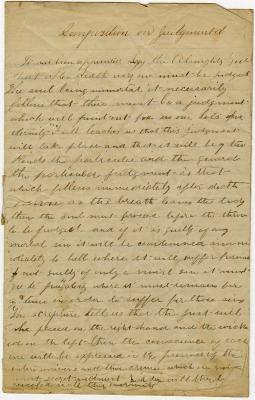 Composition on Judgment
It has been appointed by the Almighty God
that after death we must be judged
The soul being immortal it necessarily
follows that there must be a judgment
which will point out for us our lots for
eternity faith teaches us that this judgment
will take place and that it will be of two
kinds the particular and the general
the particular judgment is that
which follows immediately after death
as soon as the breath leaves the body
then the soul must proceed before the throne
to be judged and if it is guilty of any
mortal sin it will be condemned imme
diately to hell where it will suffer forever
if guilty of only a venial sin it must
go to purgatory where it must remain for
a time in order to suffer for those sins
The scripture tells us that the just will
be placed on the right hand and the wicked
on the left then the conscience of each
one will be exposed in the presence of the
entire universe and then crimes which
most secret and